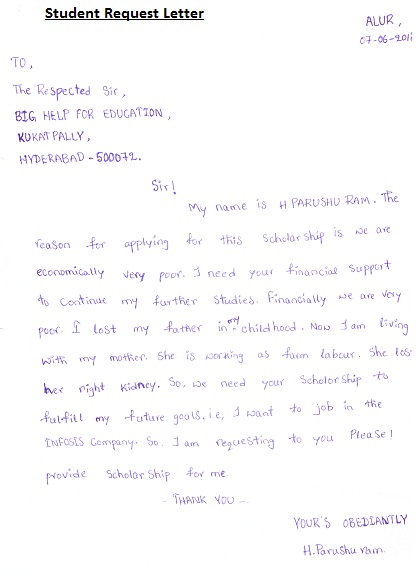 Student Request Letter
ALUR,
07-06-201
TO,
The Respected Sir,
BIG HELP FOR EDUCATION,
KUKATPALLY,
HYDERABAD - 500072.
Sir!
My name is H PARUSHU RAM. The
reason for applying for this Scholar ship is we are
economically very poor. I need your financial support
to continue my further studies. Financially we are very
poor. I lost my father in my childhood. Now I am living
with my mother. She is working as farm labour. She los
her right kidney. So, we need your Scholorship to
fulfill my future goals. i.e, I want to job in the
INFOSIS Company. So. I am requesting to you Please!
provide Scholar Ship for me.
- THANK YOU -
YOUR'S OBEDIANTLY
H. Parushu ram.